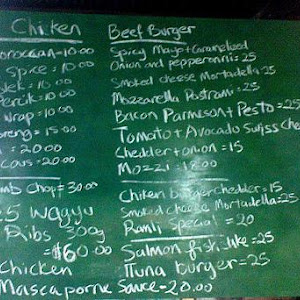 Chiken
oroccan=10.00
Spice = 10.00
ek = 10.00
ercik = 10.00
wrap = 10.00
oreng = 15.00
= 20.00
Cous = 20.00
mb Chop = 30.00
5 Wagyu
Ribs 300g
=$60.00
Chicken
Mascaporne Sauce = 20.00
Beef Burger
Spicy Mayo + Caramelized
Onion and pepperonni = 25
Smoked cheese Mortadella = 25
Mozzarella Pastrami = 25
Bacon Parmeson + Pesto = 25
Tomato + Avocado Suiss Chee
Chedder + onion = 15
Mozzi = 18.00
Chiken burger chedder = 15
Smoked cheese Mortadella = 25
Ramli special = 20
Salmon fish = 25
Tuna burger = 25